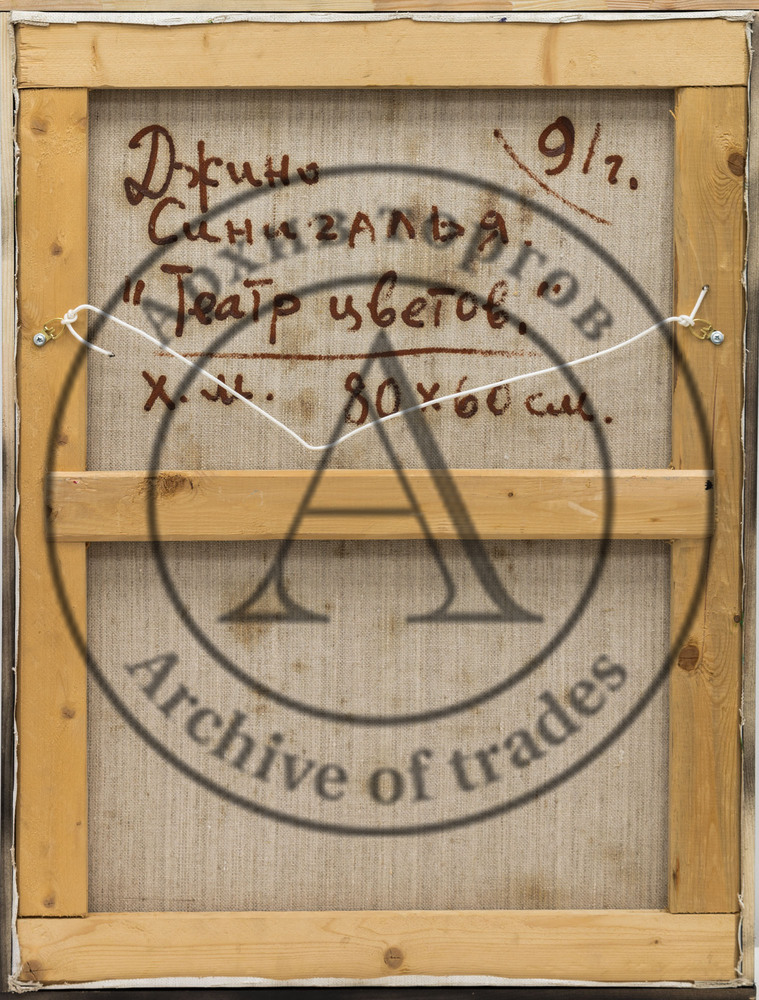 Джино 91г.
Синигалья.
"Театр цветов."
х.м. 80х60 см.
Архив торгов
Archive of trades